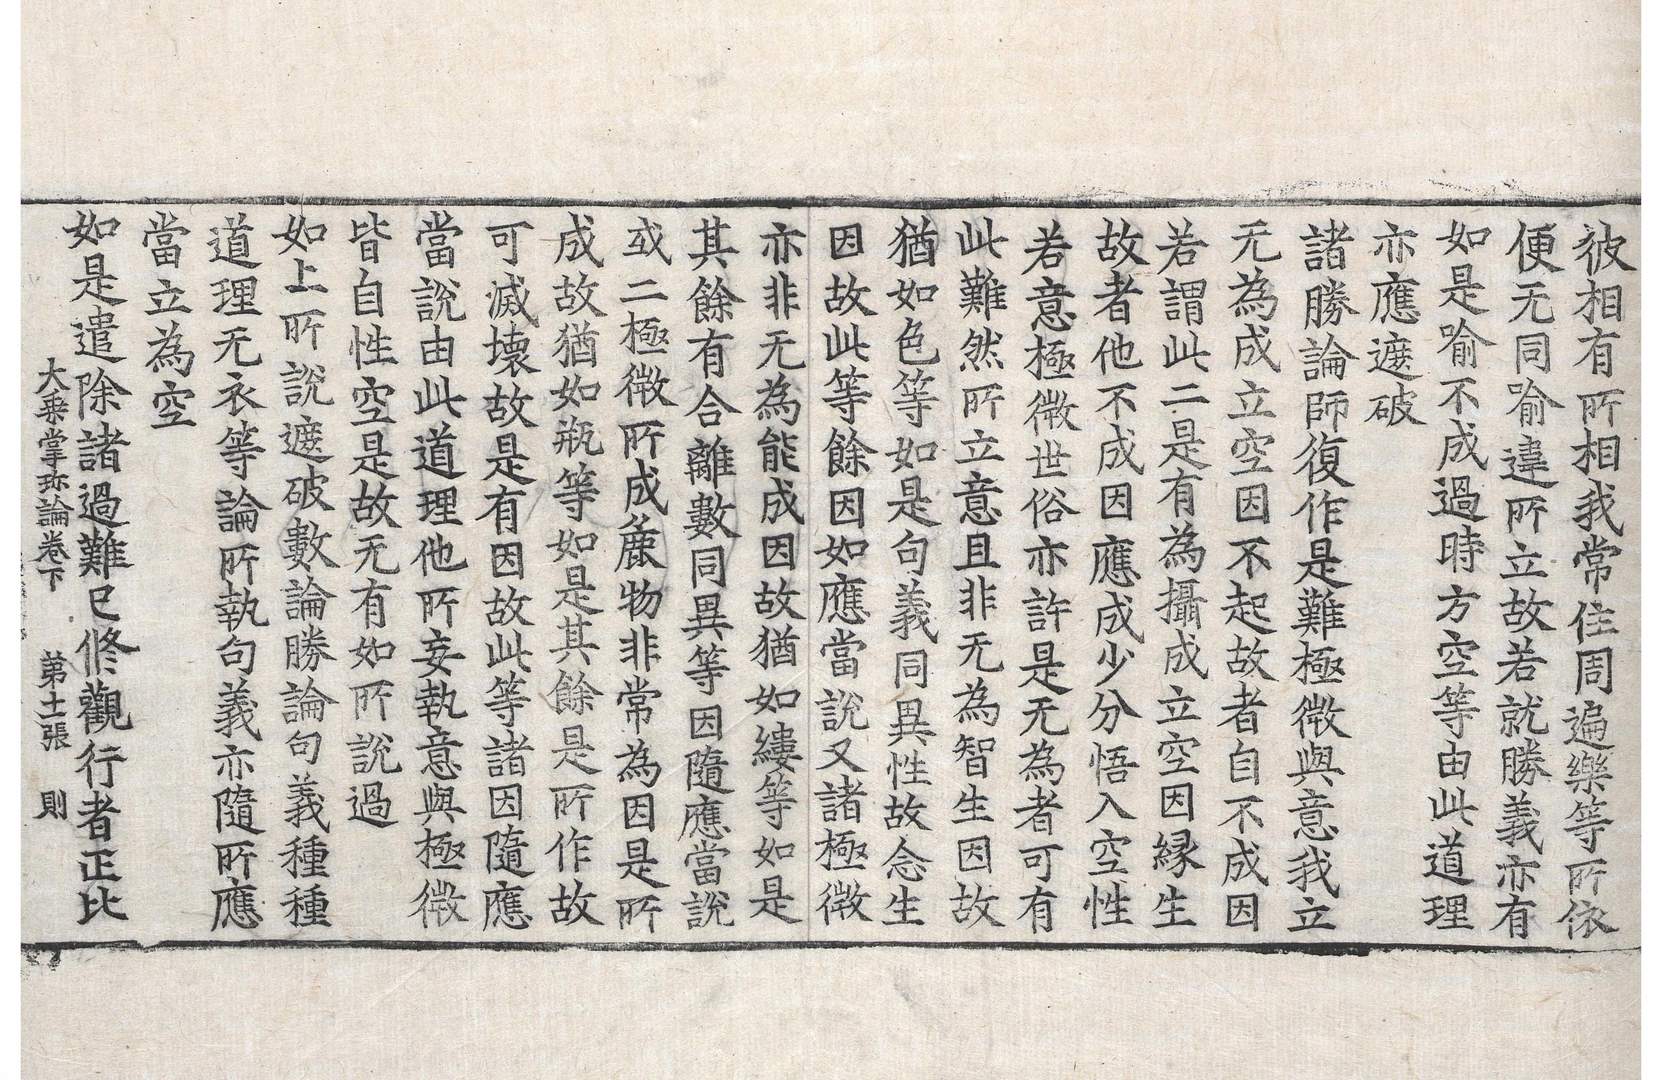 彼相有所相我常住周遍樂等所依
便无同喻違所立故若就勝義亦有
如是喻不成過時方空等由此道理
亦應遮破
諸勝論師復作是難極微與意我立
无為成立空因不起故者自不成因
若謂此二是有為攝成立空因緣生
故者他不成因應成少分悟入空性
若意極微世俗亦許是无為者可有
此難然所立意且非无為智生因故
猶如色等如是句義同異性故念生
因故此等餘因如應當說又諸極微
亦非无為能成因故猶如縷等如是
其餘有合離數同異等因隨應當說
或二極微所成麁物非常為因是所
成故猶如瓶等如是其餘是所作故
可滅壞故是有因故此等諸因隨應
當說由此道理他所妄執意與極微
皆自性空是故无有如所說過
如上所說遮破數論勝論句義種種
道理无衣等論所執句義亦隨所應
當立為空
如是遣除諸過難已修觀行者正比
大乘掌珍論卷下 第十一張 則